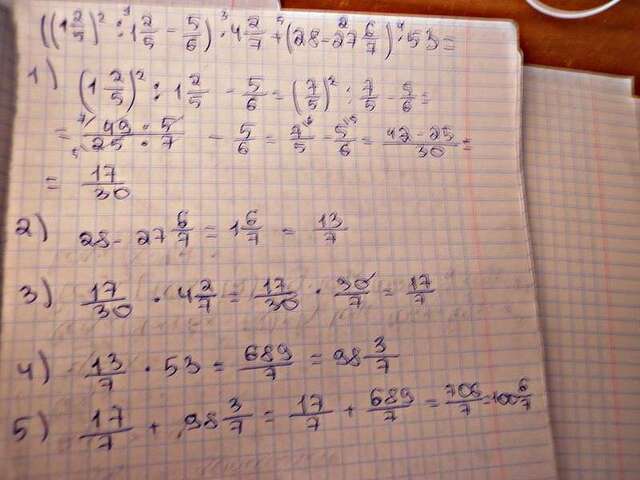 ((1 2/5)² : 1 2/5 - 5/6) · 4 2/7 + (28 - 27 6/7) · 53 =
1) (1 2/5)² : 1 2/5 - 5/6 = (7/5)² : 7/5 - 5/6 =
= 49 · 5 / 25 · 7 - 5/6 = 7/5 - 5/6 = 42 - 25 / 30 =
= 17/30
2) 28 - 27 6/7 = 1 6/7 = 13/7
3) 17/30 · 4 2/7 = 17/30 · 30/7 = 17/7
4) 13/7 · 53 = 689/7 = 98 3/7
5) 17/7 + 98 3/7 = 17/7 + 689/7 = 706/7 = 100 6/7